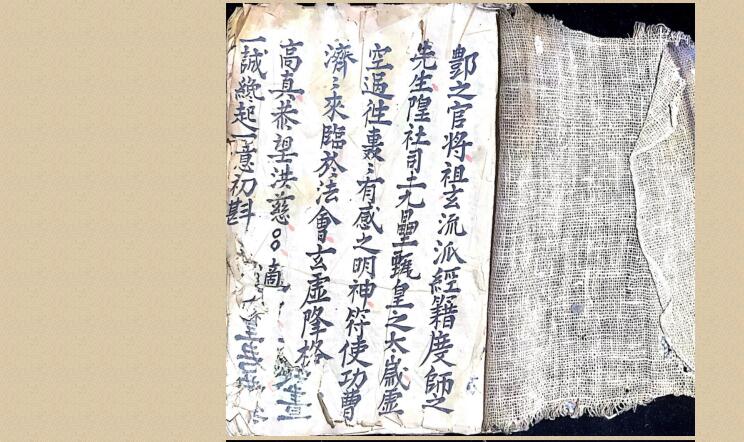 酆之官将祖玄流派經籍度師之
先生隍社司土九壘甄皇之太歲虛
空過往轟〻有感之明神符使功曹
濟〻來臨於法會玄虛降格
高真恭望洪慈
一誠纔起一意初斟